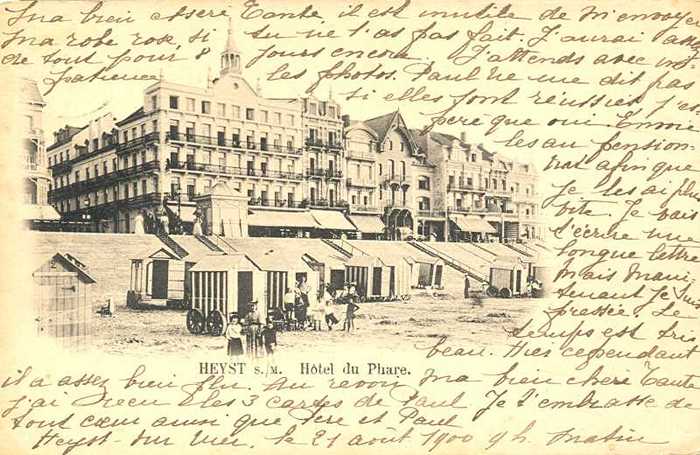 Ma bien chère Tante, il est inutile de m'envoyer
ma robe rose, si tu ne l'as pas fait. J'aurai assez
de tout pour 8 jours encore. J'attends avec im-
patience les photos. Paul ne me dit pas
si elles sont réussies, j'es-
père que oui. Envoie
les au pension-
nat afin que
je les ai plus
vite. Je vais
t'écrire une
longue lettre
mais main-
tenant je suis
pressée. Le
temps est très
beau. Hier cependant
HEYST s./M. Hôtel du Phare.
il a assez bien plu. Au revoir ma bien chère Tante
j'ai reçu les 3 cartes de Paul. Je t'embrasse de
tout cœur ainsi que Père et Paul
Heyst-sur Mer, le 21 août 1900 9 h. matin